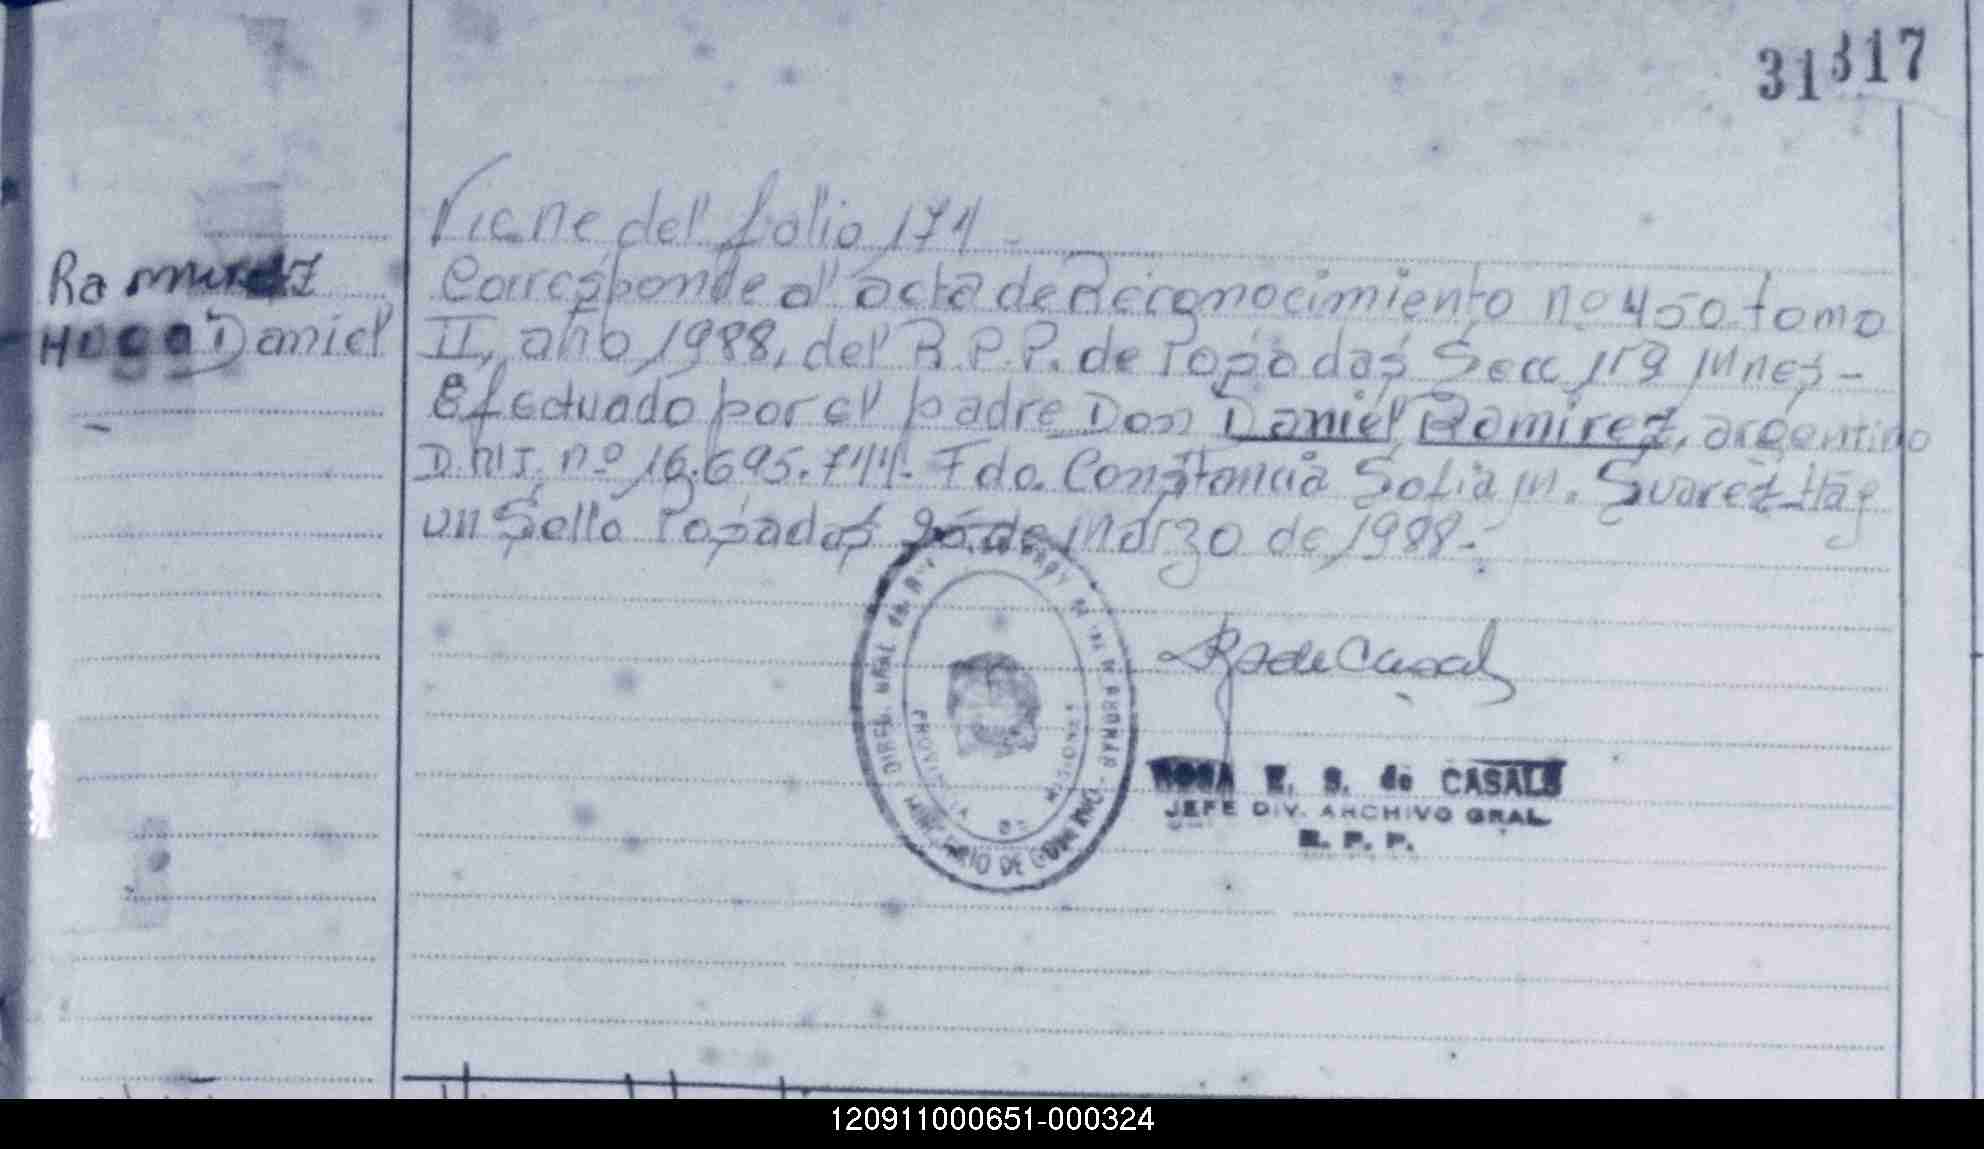 31317
Viene del folio 174.-
Ramirez
Hugo Daniel
Corresponde al acta de Reconocimiento nº 450 tomo
II, año 1988, del R.P.P. de Posadas Secc
Efectuado por el padre Don Daniel Ramirez, argentino
D.N.I. nº 16.695.744. Fdo. Constancia Sofia M. Suarez Hay
un Sello Posadas de Marzo de 1988.-
R S de Casals
DIREC. GRAL. DEL
PROVINCIA DE MISIONES
MINISTERIO DE GOBIERNO
ROSA E. S. de CASALS
JEFE DIV. ARCHIVO GRAL.
R. P. P.
120911000651-000324